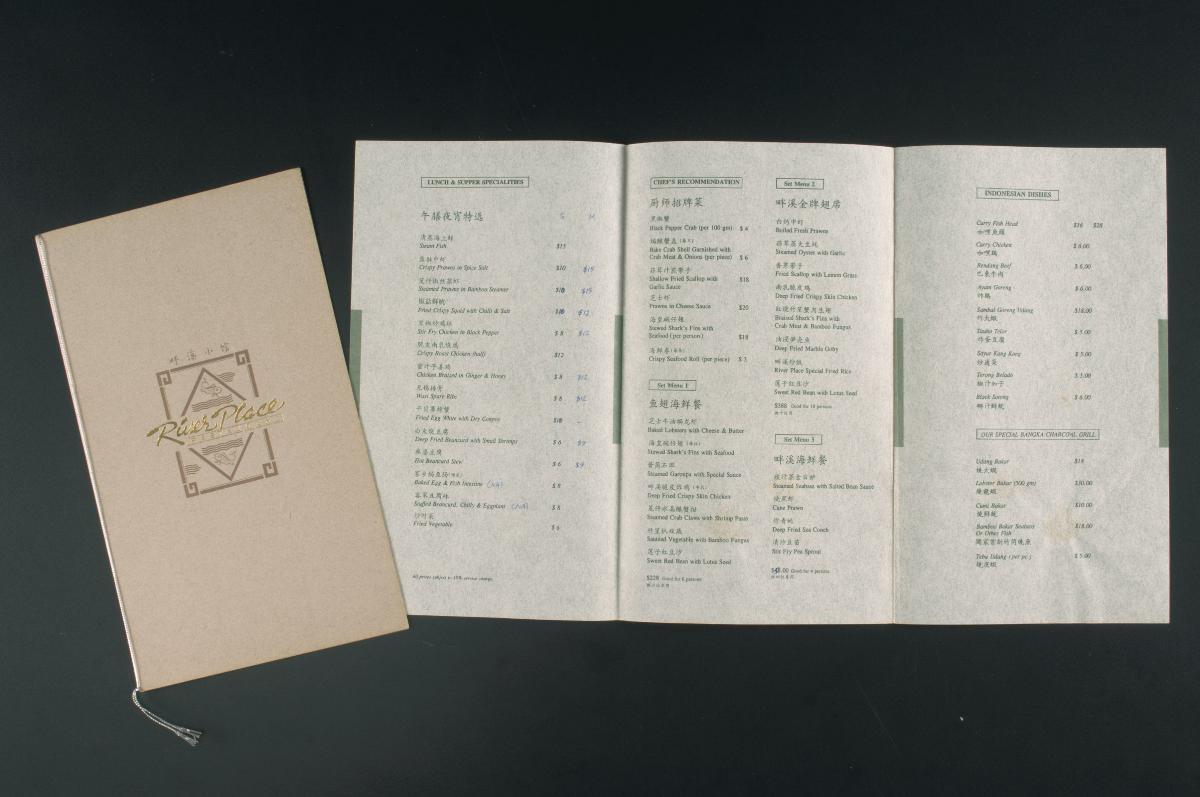 畔溪小馆
River Place
LUNCH & SUPPER SPECIALITIES
午膳夜宵特选
S M
清蒸海上鲜
Swum Fish $15
Crispy Prawns in Spice Salt $10 $15
Steamed Prawns in Bamboo Steamer $10 $15
椒盐鲜魷
Fried Crispy Squid with Chilli & Salt $10 $12
黑椒炒鸡球
Stir Fry Chicken in Black Pepper $ 8 $12
脆皮南乳烧鸡
Crispy Roast Chicken (half) $12
蜜汁子姜鸡
Chicken Braised in Ginger & Honey $ 8 $12
无锡排骨
Wuxi Spare Ribs $ 8 $12
Fried Egg White with Dry Conpoy $10 -
Deep Fried Beancurd with Small Shrimps $ 6 $9
麻婆豆腐
Hot Beancurd Stew $ 6 $9
Baked Egg & Fish Intestine $ 8
客家豆腐
Stuffed Beancurd, Chilly & Eggplant $ 8
炒时菜
Fried Vegetable $ 6
All prices subject to 10% service charge.
CHEF'S RECOMMENDATION
厨师招牌菜
黑椒蟹
Black Pepper Crab (per 100 gm) $ 4
Bake Crab Shell Garnished with
Crab Meat & Onions (per piece) $ 6
蒜茸汁煎带子
Shallow Fried Scallop with $18
Garlic Sauce
芝士虾
Prawns in Cheese Sauce $20
海皇碗仔翅
Stewed Shark's Fins with
Seafood (per person) $18
海鲜卷(每条)
Crispy Seafood Roll (per piece) $ 3
Set Menu 1
鱼翅海鲜餐
芝士牛油焗龙虾
Baked Lobsters with Cheese & Butter
海皇碗仔翅(每位)
Stewed Shark's Fins with Seafood
Steamed Garoupa with Special Sauce
畔溪脆皮炸鸡
Deep Fried Crispy Skin Chicken
Steamed Crab Claws with Shrimp Paste
竹笙扒时蔬
Sauteed Vegetable with Bamboo Fungus
莲子红豆沙
Sweet Red Bean with Lotus Seed
$228 Good for 6 persons
Set Menu 2
畔溪金牌翅席
白灼中虾
Boiled Fresh Prawns
蒜茸蒸大生蚝
Steamed Oyster with Garlic
香茅带子
Fried Scallop with Lemon Grass
南乳脆皮鸡
Deep Fried Crispy Skin Chicken
红烧竹笙蟹肉生翅
Braised Shark's Fins with
Crab Meat & Bamboo Fungus
油浸笋壳鱼
Deep Fried Marble Goby
畔溪炒饭
River Place Special Fried Rice
莲子红豆沙
Sweet Red Bean with Lotus Seed
$388 Good for 10 persons
Set Menu 3
畔溪海鲜餐
Steamed Seabass with Salted Bean Sauce
Cane Prawn
Deep Fried Sea Conch
清炒豆苗
Stir Fry Pea Sprout
Good for 4 persons
INDONESIAN DISHES
Curry Fish Head $16 $28
咖喱鱼头
Curry Chicken $ 6.00
咖喱鸡
Rendang Beef $ 6.00
巴东牛肉
Ayam Goreng $ 6.00
炸鸡
Sambal Goreng Udang $18.00
炸大虾
Tauhu Telor $ 5.00
炸蛋豆腐
Sayur Kang Kong $ 5.00
炒蕹菜
Terong Belado $ 5.00
椒汁茄子
Black Sotong $ 6.00
椰汁鲜魷
OUR SPECIAL BANGKA CHARCOAL GRILL
Udang Bakar $18
烧大虾
Lobster Bakar (500 gm) $30.00
烧龙虾
Cumi Bakar $10.00
烧鲜魷
Bamboo Bakar Seabass $18.00
Or Other Fish
独家首创竹筒烧鱼
Tebu Udang (per pc.) $ 5.00
烧蔗虾